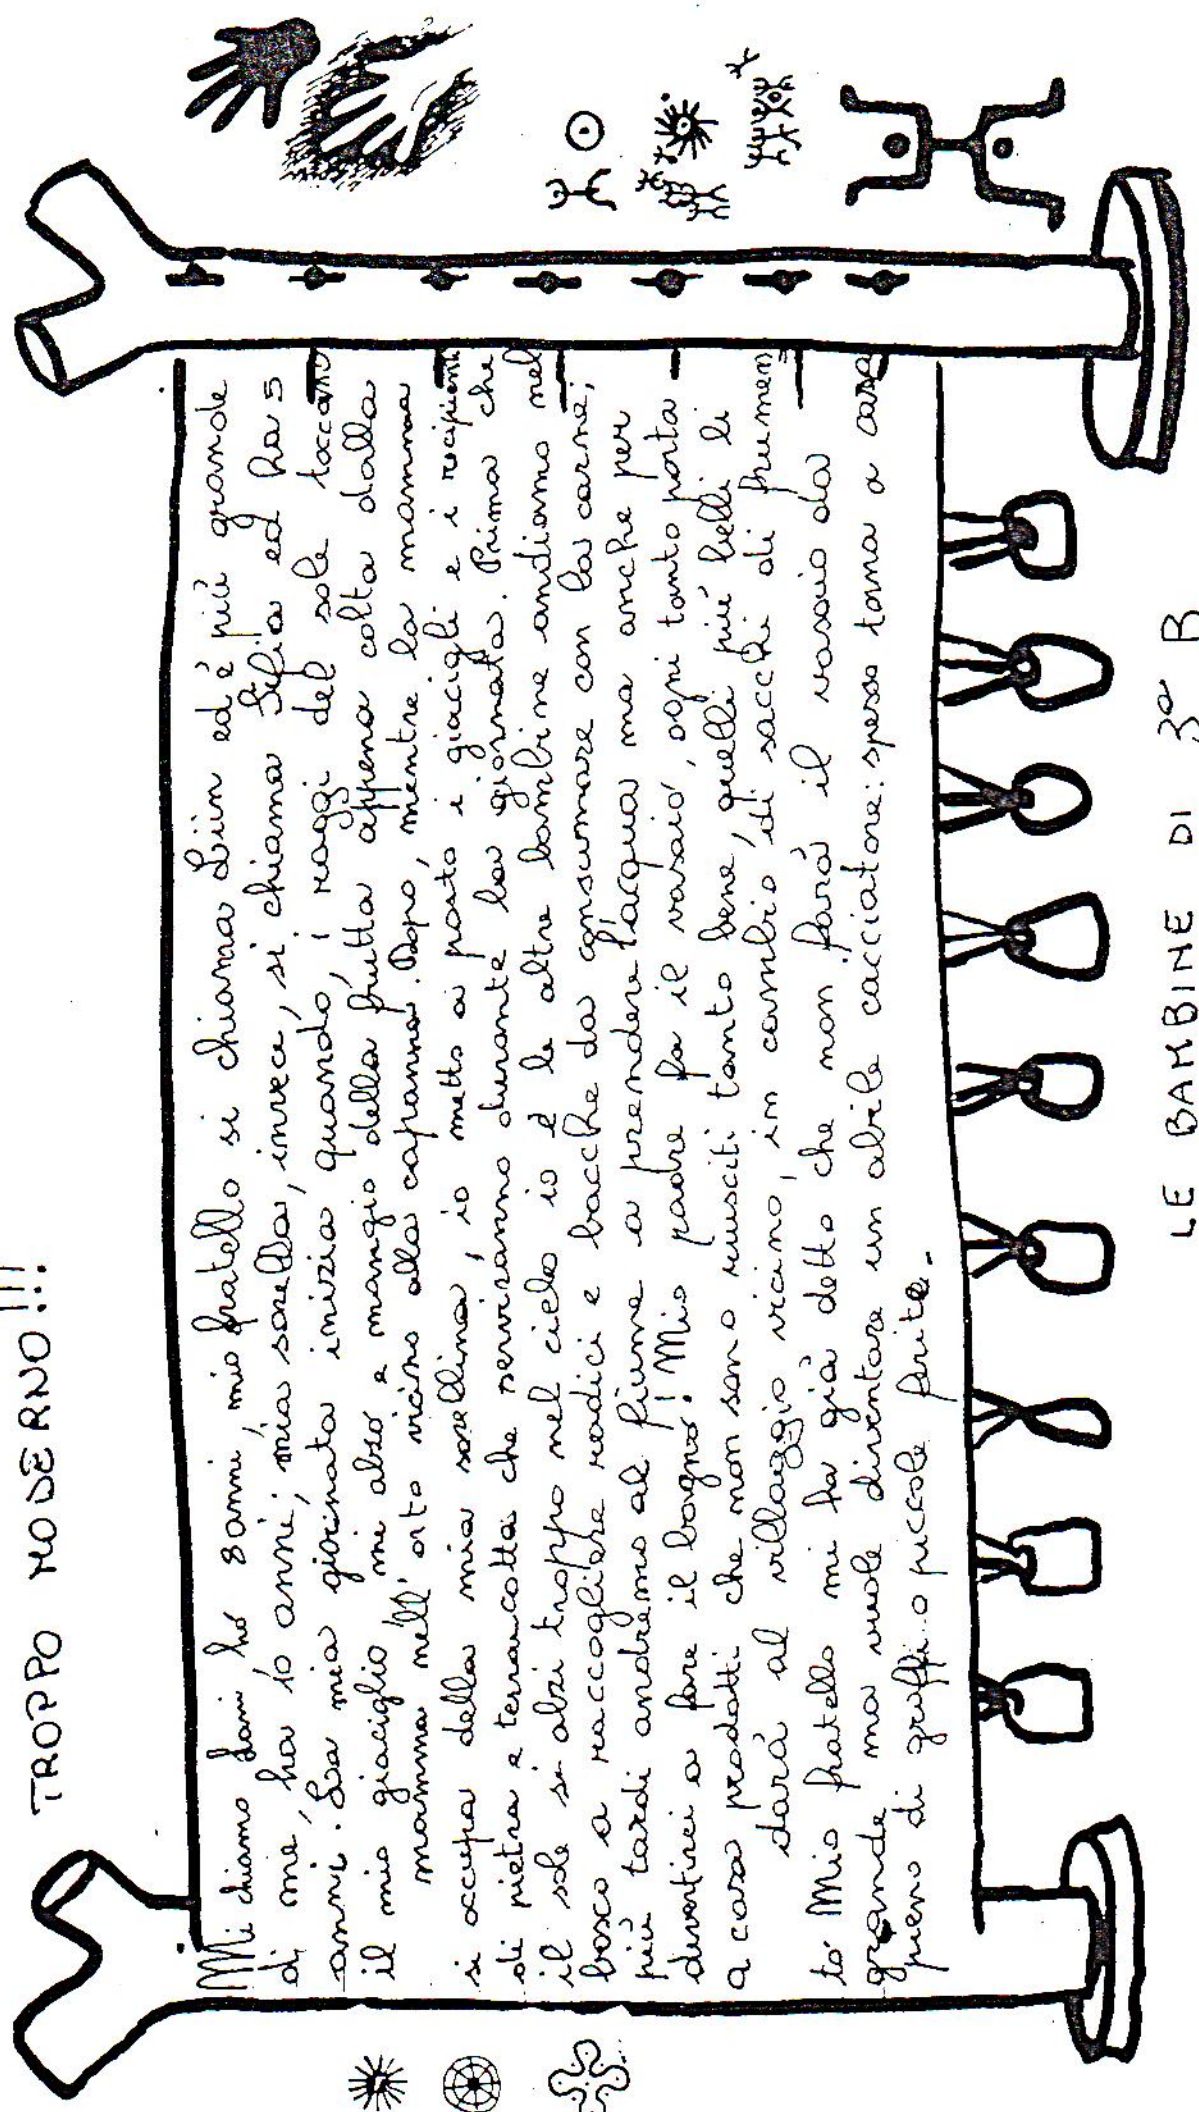 TROPPO MODERNO!!!
Mi chiamo Lani ho 8 anni, mio fratello si chiama Liin ed è più grande
di me, ha 10 anni; mia sorella, invece, si chiama Sefia ed ha 5
anni. La mia giornata inizia quando, i raggi del sole toccano
il mio giaciglio mi alzo e mangio della frutta appena colta dalla
mamma nell'orto vicino alla capanna. Dopo, mentre la mamma
si occupa della mia sorellina, io metto a posto i giacigli e i recipienti
di pietra e terracotta che serviranno durante la giornata. Prima che
il sole si alzi troppo nel cielo io e le altre bambine andiamo nel
bosco a raccogliere radici e bacche da consumare con la carne;
più tardi andremo al fiume a prendere l'acqua ma anche per
divertirci a fare il bagno! Mio padre fa il vasaio, ogni tanto porta
a casa prodotti che non sono riusciti tanto bene, quelli più belli li
darà al villaggio vicino, in cambio di sacchi di frumen
to Mio fratello mi ha già detto che non farà il vasaio da
grande ma vuole diventare un abile cacciatore: spesso torna a casa
pieno di graffi o piccole ferite.
LE BAMBINE DI 3ª B